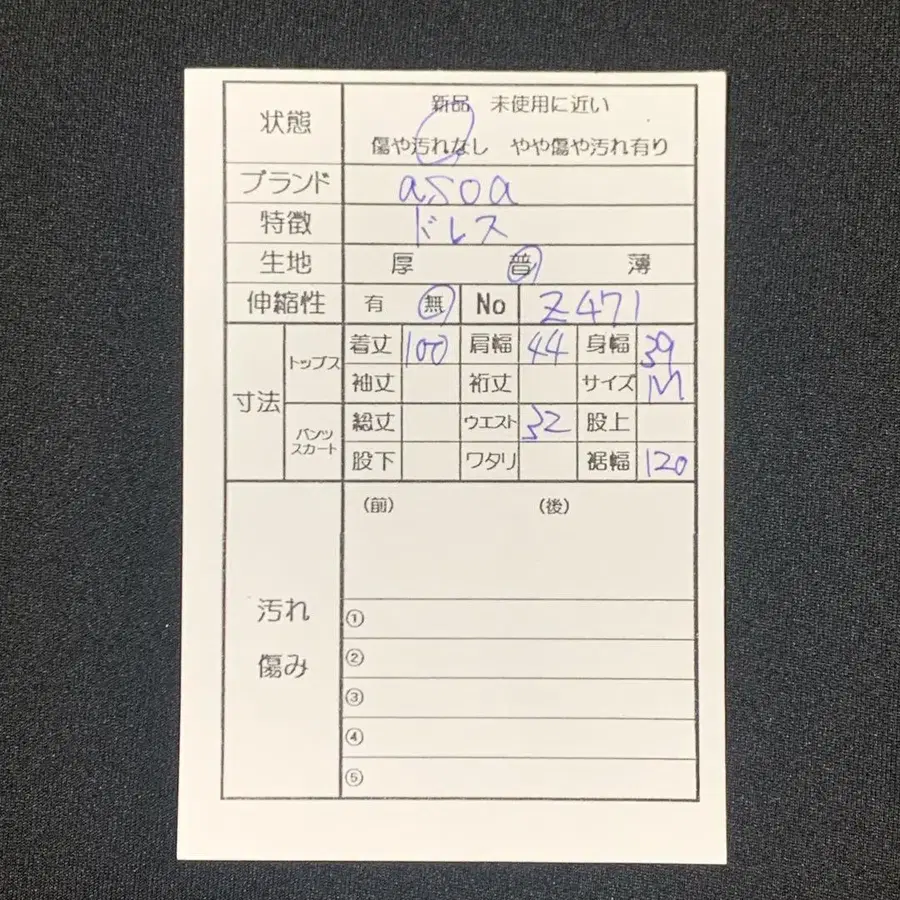 状態 新品 未使用に近い
傷や汚れなし やや傷や汚れ有り
ブランド asoa
特徴 ドレス
生地 厚 普 薄
伸縮性 有 無 No Z471
寸法 トップス 着丈 100 肩幅 44 身幅 39
袖丈 裄丈 サイズ M
パンツ スカート 総丈 ウエスト 32 股上
股下 ワタリ 裾幅 120
汚れ 傷み (前) (後)
①
②
③
④
⑤